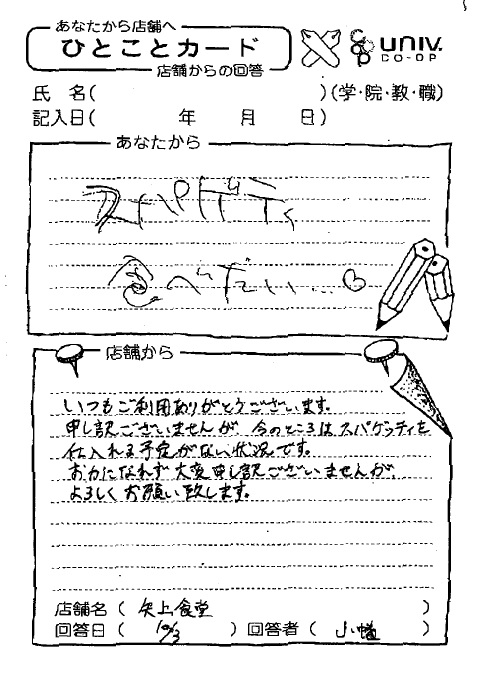 あなたから店舗へ
ひとことカード
店舗からの回答
UNIV.
CO-OP
氏 名( )(学・院・教・職)
記入日( 年 月 日)
あなたから
スパゲティ
食べたい…♡
店舗から
いつもご利用ありがとうございます。
申し訳ございませんが、今のところはスパゲッティを
仕入れる予定がない状況です。
お力になれず大変申し訳ございませんが、
よろしくお願い致します。
店舗名( 矢上食堂 )
回答日( 10/3 )回答者( 小幡 )